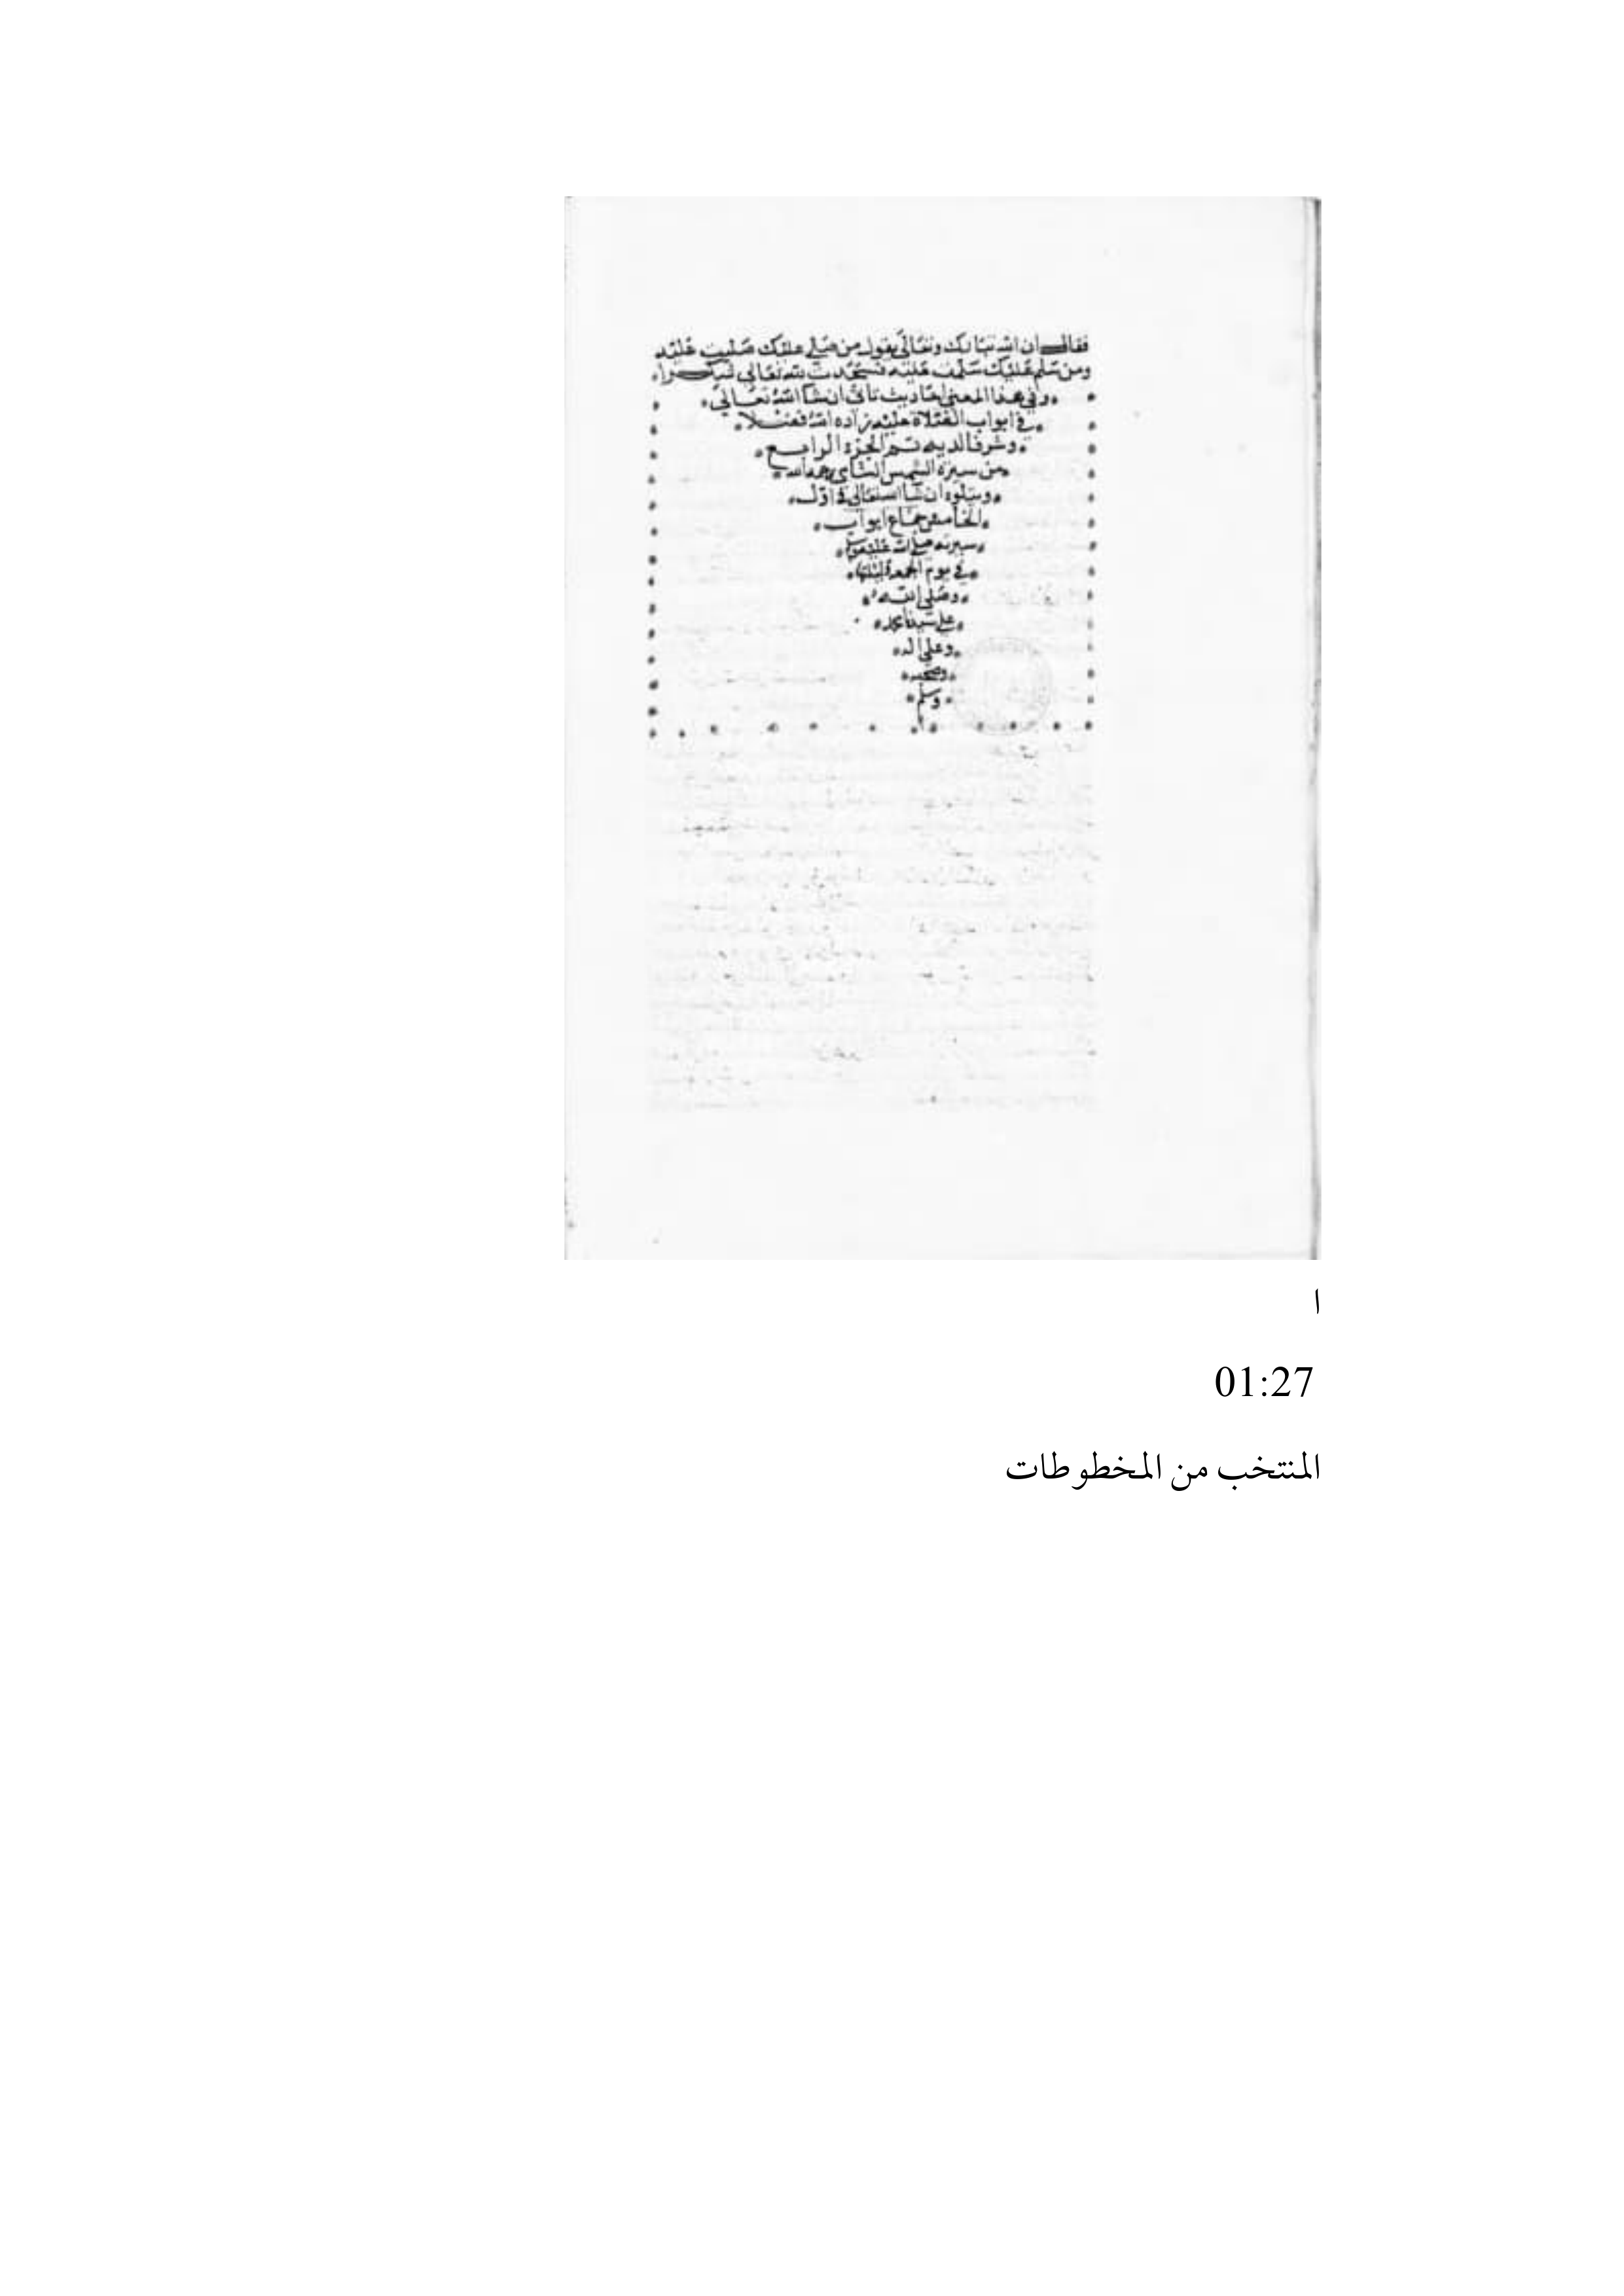 فقال ان الله تبارك وتعالى يقول من صلى عليك صليت عليه
ومن سلم عليك سلمت عليه فسجدت لله تعالى شكرا
وفي هذا المعنى احاديث تاتي ان شا الله تعالى
في ابواب الصلاة عليه زاده الله فضلا
وشرفا لديه تم الجزء الرابع
من سيرة الشمس الشامي رحمه الله
ويتلوه ان شا الله تعالى في اول
الخامس جماع ابواب
سيرته صلى الله عليه وسلم
في يوم الجمعة وليلتها
وصلى الله
على سيدنا محمد
وعلى اله
وصحبه
وسلم
ا
01:27
المنتخب من المخطوطات